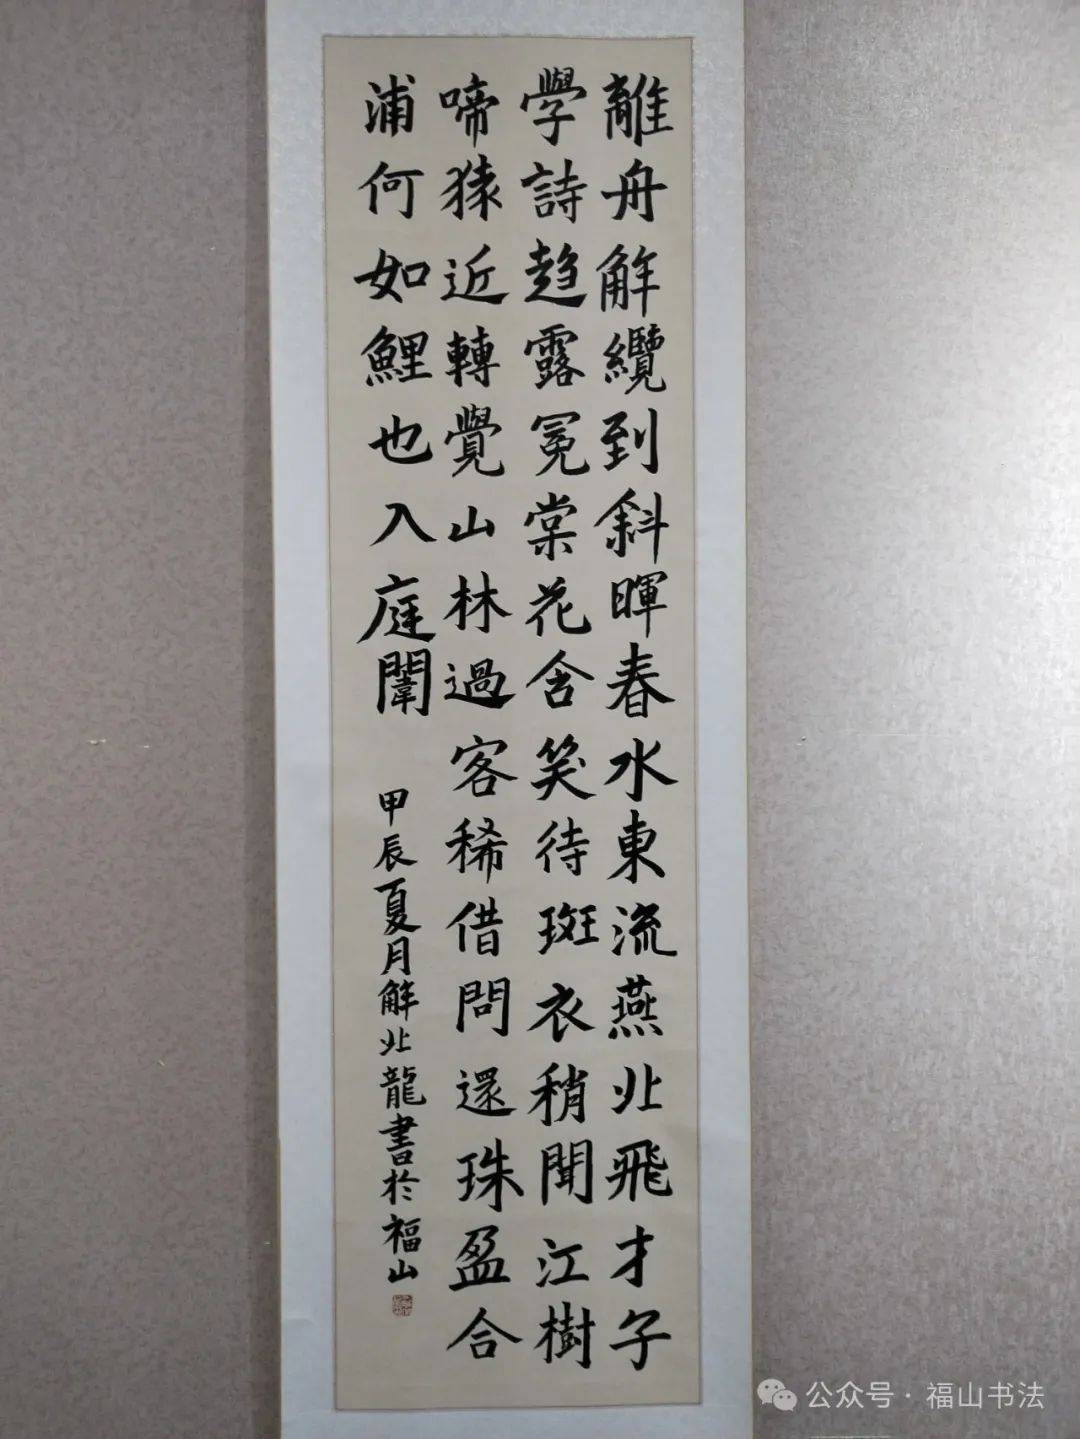 離舟解纜到斜暉春水東流燕北飛才子
學詩趨露冕棠花含笑待斑衣稍聞江樹
啼猿近轉覺山林過客稀借問還珠盈合
浦何如鯉也入庭闈
甲辰夏月解北龍書於福山
公众号·福山书法